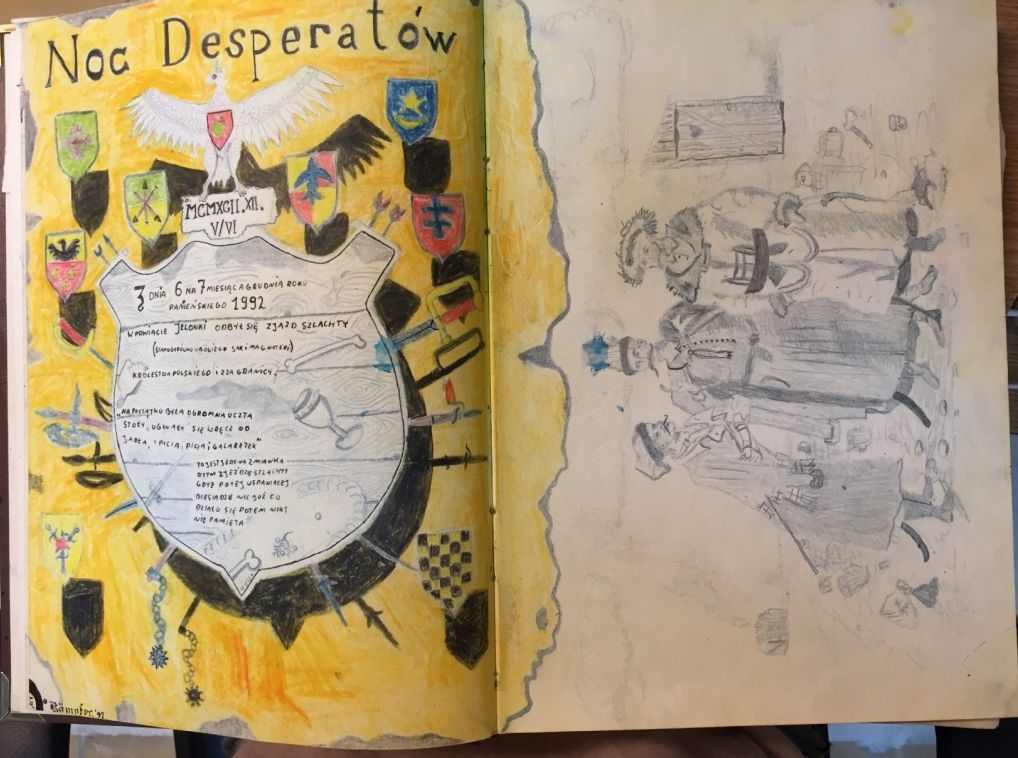 Noc Desperatów
MCMXCII.XII.
V/VI
Z DNIA 6 NA 7 MIESIĄCA GRUDNIA ROKU
PAŃIEŃSKIEGO 1992
W POWIACIE JELONKI ODBYŁ SIĘ ZJAZD SZLACHTY
(STANDAROWO UBOGIEGO JAK I MAGNATERII)
KRÓLESTWA POLSKIEGO I ZZA GRANICY.
"NA POCZĄTKU BYŁA OGROMNA UCZTA
STOŁY UGINAŁY SIĘ WRĘCZ OD
JADŁA, I PICIA, PICIA I GALARETEK"
TO JEST JEDYNA ZMIANKA
O TYM ZJEŹDZIE SZLACHTY
GDYŻ PO TEJ WSPANIAŁEJ
BIESIADZIE NIC JUŻ CO
DZIAŁO SIĘ POTEM NIKT
NIE PAMIĘTA
'92